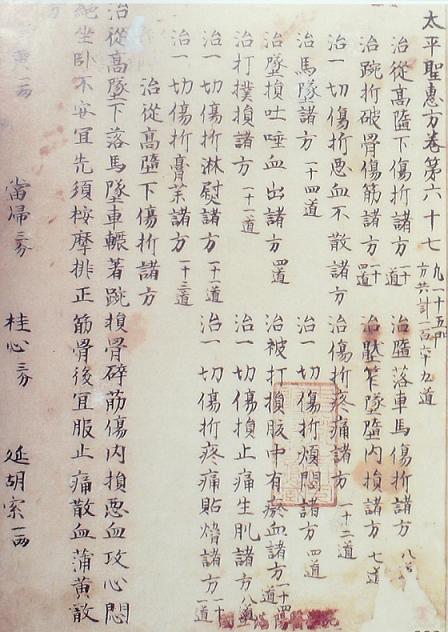 太平聖惠方卷第六十七 凡一十五門 方共計一百六十九道
治從高墜下傷折諸方 治墮落車馬傷折諸方
治踠折破骨傷筋諸方 治壓笮墜墮內損諸方 七道
治一切傷折惡血不散諸方 治傷折疼痛諸方 一十二道
治馬墜諸方 一十四道 治一切傷折煩悶諸方 四道
治墜損吐唾血出諸方 四道 治被打損腹中有瘀血諸方
治打撲損諸方 一十二道 治一切傷損止痛生肌諸方 八道
治一切傷折淋熨諸方 治一切傷折疼痛貼熁諸方
治一切傷折膏藥諸方 一十三道
治從高墮下傷折諸方
治從高墜下落馬墜車輾著踠損骨碎筋傷內損惡血攻心悶
絕坐臥不安宜先須按摩排正筋骨後宜服止痛散血蒲黃散
方
當歸 三分 桂心 三分 延胡索 一兩